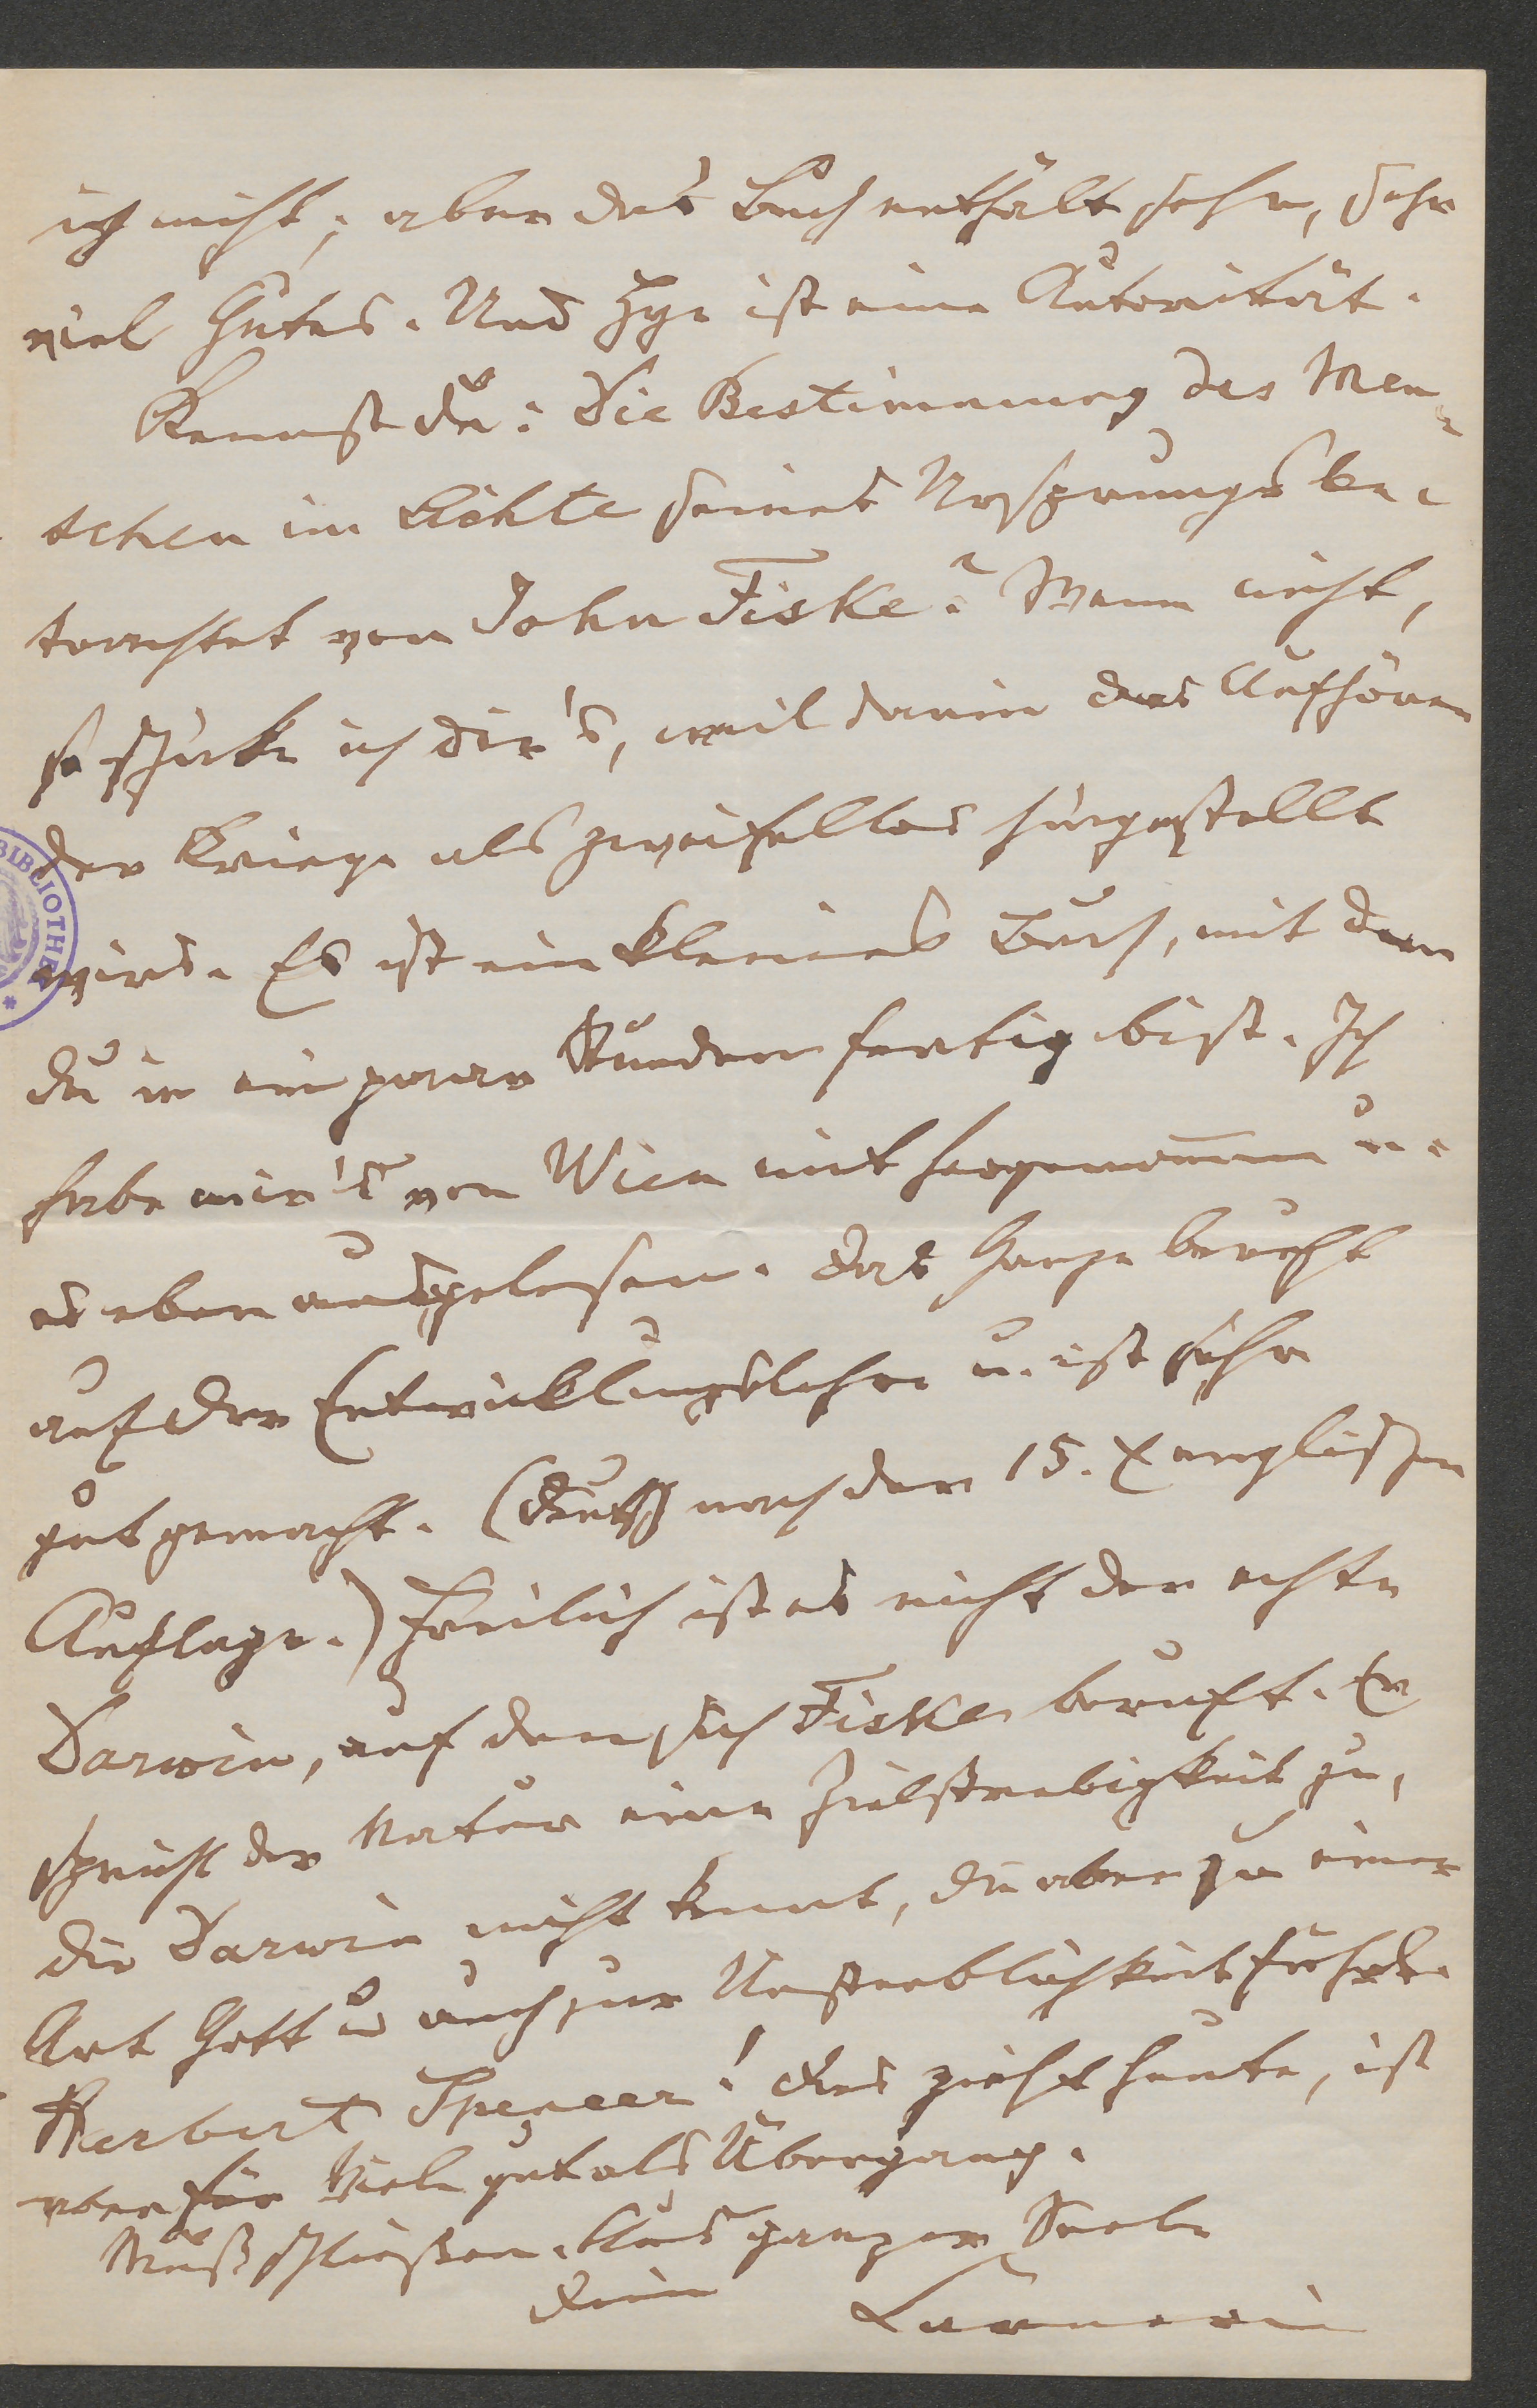 ich nicht; aber das Buch enthält sehr, sehr
viel Gutes. Und Hye ist eine Autorität.
Kennst du: Die Bestimmung des Men-
schen im Lichte seines Ursprungs be-
trachtet von John Fiske? Wenn nicht,
so schicke ich dir's, weil darin das Aufhören
der Kriege als zweifellos hingestellt
wird. Es ist ein kleines Buch, mit dem
du in ein paar Stunden fertig bist. Ich
habe mir's von Wien mit hergenom̅en u.
es eben ausgelesen. Das Ganze beruht
auf der Entwicklungslehre u. ist sehr
gut gemacht. (Deutsch nach der 15. englischen
Auflage.) Freilich ist es nicht der echte
Darwin, auf den sich Fiske beruft. Er
spricht der Natur eine Zielstrebigkeit zu,
die Darwin nicht kennt, die aber zu einer
Art Gott u auch zur Unsterblichkeit führt.
Herbert Spencer! Das zieht heute, ist
aber für Viele gut als Übergang.
Muß schließen. Aus ganzer Seele
dein Carneri
BIBLIOTHEK